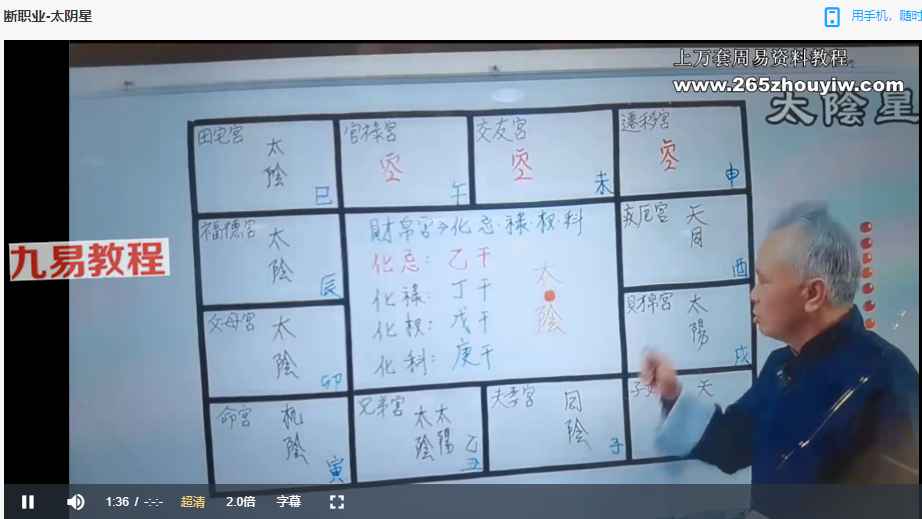 断职业-太阴星
用手机，随时
上万套周易资料教程。
www.265zhouyiw.com
太陰星
田宅宫
太
陰
巳
官祿宫
空
午
交友宫
空
未
遷移宫
空
申
福德宫
太
陰
辰
財帛宫→化忌·禄·权·科
化忌：乙干
化禄：丁干
化权：戊干
化科：庚干
太
陰
疾厄宫
天
同
酉
九易教程
父母宫
太
陰
卯
財帛宫
太
陽
戌
命宫
机
陰
寅
兄弟宫
太太
陰陽
乙
丑
夫妻宫
同
陰
子
子
天
1:36 / -:-:-
超清
2.0倍
字幕